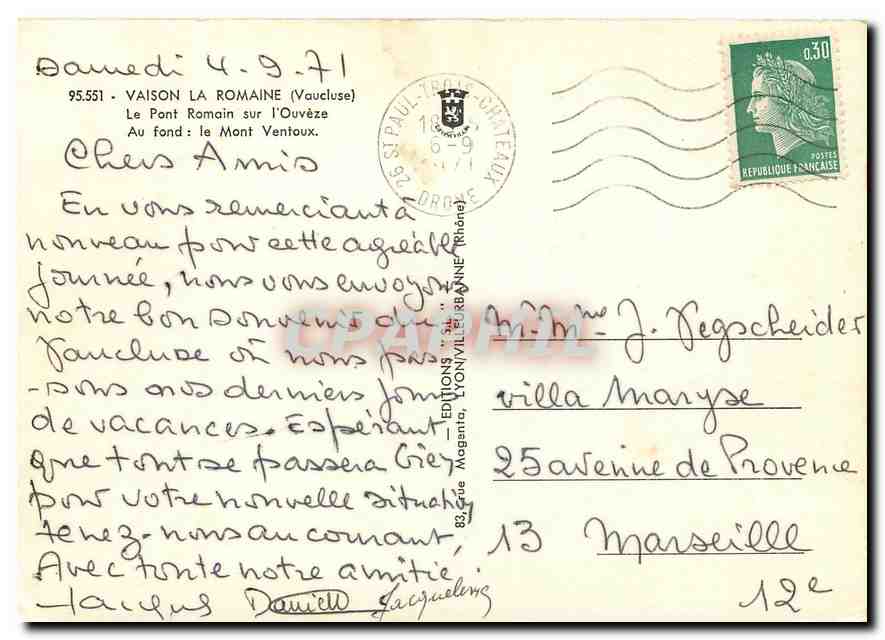 Samedi 4-9-71
95.551 - VAISON LA ROMAINE (Vaucluse)
Le Pont Romain sur l'Ouvèze
Au fond : le Mont Ventoux.
Chers Amis
En vous remerciant à
nouveau pour cette agréable
journée, nous vous envoyons
notre bon souvenir du
Vaucluse où nous pas-
-sons nos derniers jours
de vacances. Espérant
que tout se passera bien
pour votre nouvelle situation
tenez-nous au courant,
Avec toute notre amitié.
Jacques Danielle Jacqueline
26 ST PAUL-TROIS-CHATEAUX
18
6-9
DROME
0,30
POSTES
REPUBLIQUE FRANÇAISE
EDITIONS " S.L. "
83, rue Magenta, LYON/VILLEURBANNE (Rhône)
CPAPHIL
M-Mme J. Vegscheider
villa Maryse
25 avenue de Provence
13 Marseille
12e